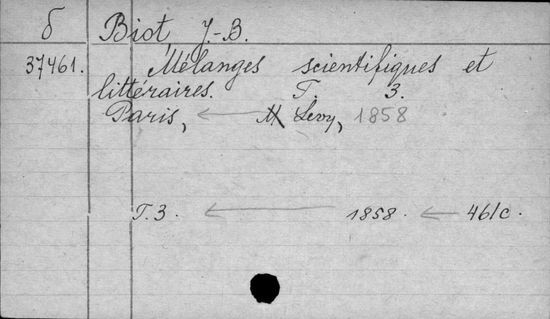 б Biot, J.-B.
37461. Mélanges scientifiques et
littéraires. T. 3.
Paris, ← M Levy, 1858
T. 3. ← 1858. ← 46/c.